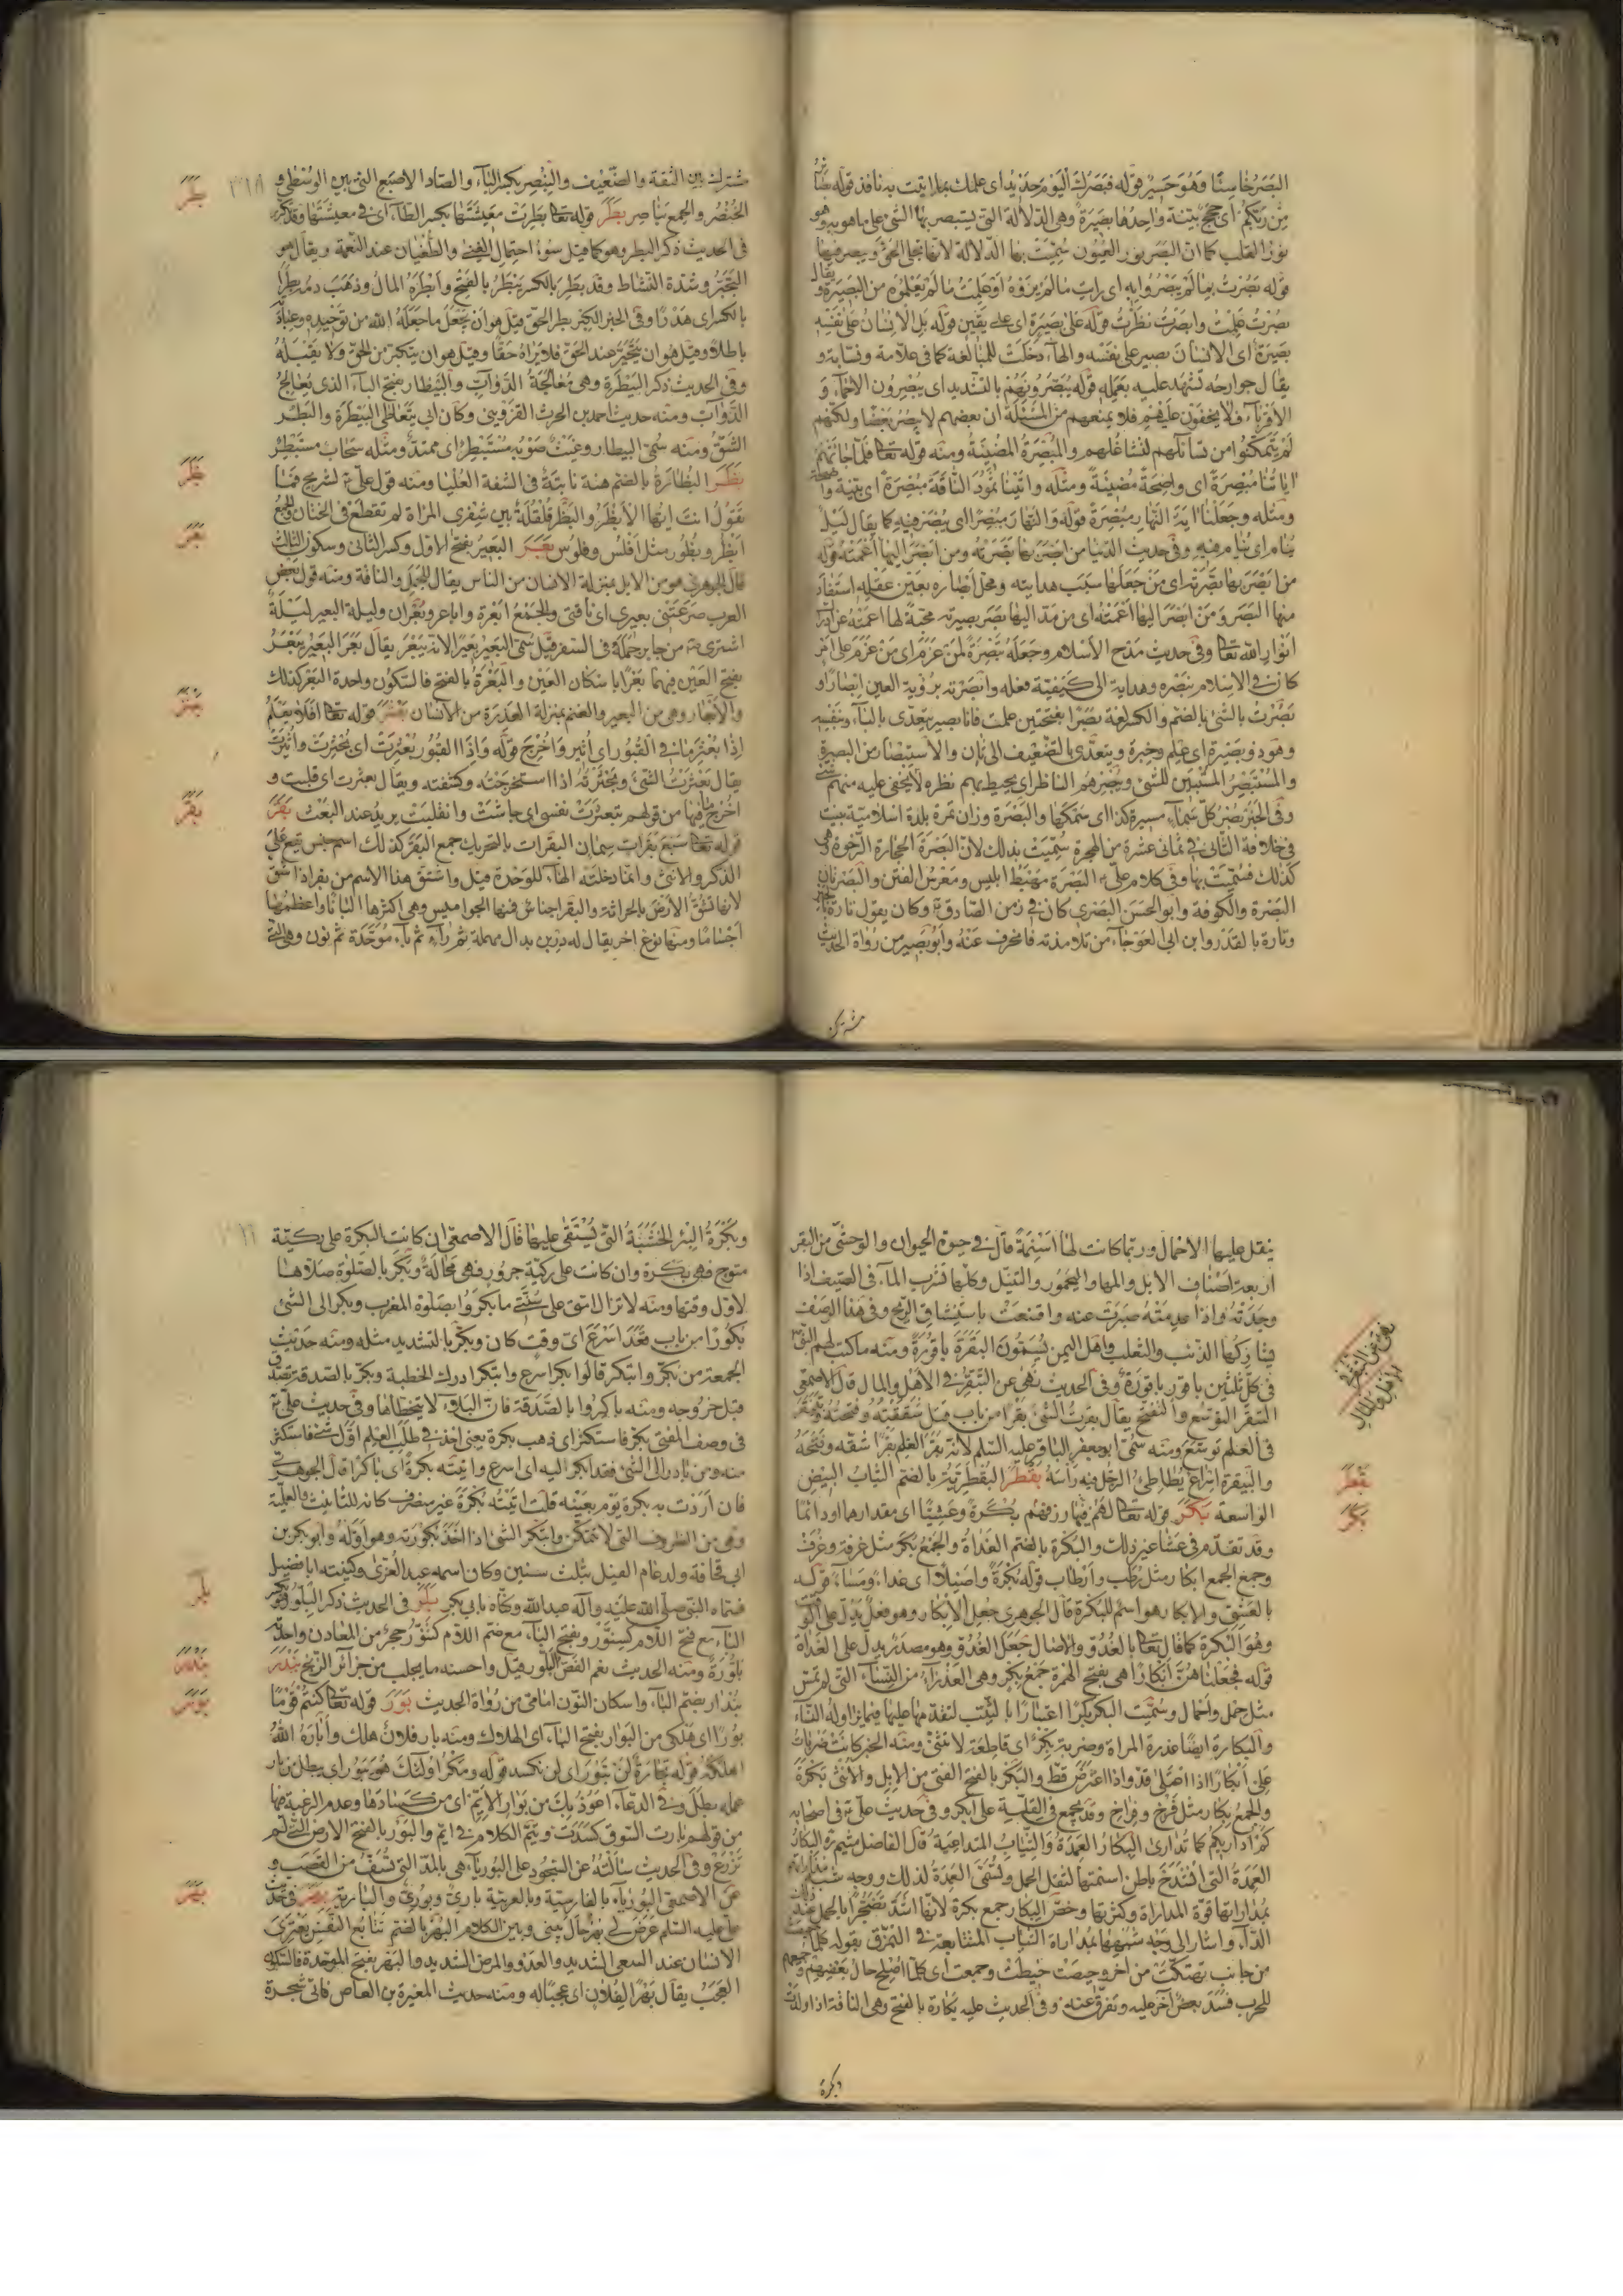 البصر خاسئا وهو حسير قوله فبصرك اليوم حديد اى علمك بما انت به نافذ قوله بصائر
من ربكم اى حجج بينة واحدها بصيرة وهى الدلالة التى يستبصر بها الشئ على ما هو به وهو
نور القلب كما ان البصر نور العيون سميت بها الدلالة لانها تجلى الحق ويبصر فيها
قوله بصرت بما لم يبصروا به اى رايت ما لم يروه او علمت ما لم يعلموه من البصيرة ويقال
بصرت علمت وابصرت نظرت قوله على بصيرة اى على يقين قوله بل الانسان على نفسه
بصيرة اى الانسان بصير على نفسه والهاء دخلت للمبالغة كما فى علامة ونسابة و
يقال جوارحه تشهد عليه بعمله قوله يبصرونهم بالتشديد اى يبصرون الاحماء و
الاقرباء فلا يخفون عليهم فلا يمنعهم من المسئلة ان بعضهم لا يبصر بعضا ولكنهم
لم يتمكنوا من تسائلهم لتشاغلهم والمبصرة المضيئة ومنه قوله تعالى فلما جاءتهم
اياتنا مبصرة اى واضحة مضيئة ومثله واتينا ثمود الناقة مبصرة اى بينة واضحة
ومثله وجعلنا اية النهار مبصرة قوله والنهار مبصرا اى يبصر فيه كما يقال ليل
ينام اى ينام فيه وفى حديث الدنيا من ابصر بها بصرته ومن ابصر اليها اعمته قوله
من ابصر بها بصرته اى من جعلها سبب هدايته ومحل ابصاره بعين عقله استفاد
منها البصر ومن ابصر اليها اعمته اى من مد اليها بصر بصيرته محبة لها اعمته عن ادراك
انوار الله تعالى وفى حديث مدح الاسلام وجعله تبصرة لمن عزم اى من عزم على امر
كان فى الاسلام تبصره وهداية الى كيفية فعله وابصرته برؤية العين ابصارا و
بصرت بالشئ بالضم والكسر لغة بصرا بفتحتين علمت فانا بصير يتعدى بالباء وبنفسه
وهو ذو بصيرة اى علم وخبرة ويتعدى بالتضعيف الى ثان والاستبصار من البصيرة
والمستبصر المستبين للشئ ويبصرهم الناظر اى يحيط بهم نظره لا يخفى عليه منهم شئ
وفى الخبر بصر كل سماء مسيرة كذا اى سمكها والبصرة وزان تمرة بلدة اسلامية بنيت
فى خلافة الثانى فى ثمانى عشرة من الهجرة سميت بذلك لان البصرة الحجارة الرخوة وهى
كذلك فسميت بها وفى كلام على البصرة مهبط ابليس ومغرس الفتن والبصرتان
البصرة والكوفة وابو الحسن البصرى كان فى زمن الصادق وكان يقول تارة بالجبر
وتارة بالقدر وابن ابى العوجاء من تلامذته فانحرف عنه وابو بصير من رواة الحديث
مشترك
٣١٨
مشترك بين الثقة والضعيف والبنصر بكسر الباء والصاد الاصبع التى بين الوسطى و
الخنصر والجمع بناصر بطر قوله تعالى بطرت معيشتها بكسر الطاء اى فى معيشتها وقد تكرر
فى الحديث ذكر البطر وهو كما قيل سوء احتمال الغنى والطغيان عند النعمة ويقال هو
التجبر وشدة النشاط وقد بطر بالكسر يبطر بالفتح وابطره المال وذهب دمه بطرا
بالكسر اى هدرا وفى الخبر الكبر بطر الحق قيل هو ان يجعل ما جعله الله من توحيده وعبادته
باطلا وقيل هو ان يتجبر عند الحق فلا يراه حقا وقيل هو ان يتكبر من الحق ولا يقبله
وفى الحديث ذكر البيطرة وهى معالجة الدواب والبيطار بفتح الباء الذى يعالج
الدواب ومنه حديث احمد بن الحرث القزوينى وكان ابى يتعاطى البيطرة والبطر
الشق ومنه سمى البيطار وغيث صوبه مستبطر اى ممتد ومثله سحاب مستبطر
بظر البظارة بالضم هنة نابتة فى الشفة العليا ومنه قول على لشريح فما
تقول انت ايها الابظر والبظر قلقلة بين شفرى المراة لم تقطع فى الختان والجمع
ابظر وبظور مثل افلس وفلوس بعر البعير بفتح الاول وكسر الثانى وسكون الثالث
قال الجوهرى هو من الابل بمنزلة الانسان من الناس يقال للجمل والناقة ومنه قول بعض
العرب صرعتنى بعيرى اى ناقتى والجمع ابعرة واباعر وبعران وليلة البعير ليلة
اشترى من جابر جمله فى السفر قيل سمى البعير بعيرا لانه يبعر يقال بعر البعير يبعر
بفتح العين فيهما بعرا باسكان العين والبعرة بالفتح فالسكون واحدة البعر كذلك
والابعار وهى من البعير والغنم بمنزلة العذرة من الانسان بعثر قوله تعالى افلا يعلم
اذا بعثر ما فى القبور اى اثير واخرج قوله واذا القبور بعثرت اى بحثرت واثيرت
يقال بعثرت الشئ وبحثرته اذا استخرجته وكشفته ويقال بعثرت اى قلبت و
اخرج ما فيها من قولهم تبعثرت نفسى اى جاشت وانقلبت يريد عند البعث بقر
قوله تعالى سبع بقرات سمان البقرات بالتحريك جمع البقر كذلك اسم جنس تقع على
الذكر والانثى وانما دخلته الهاء للوحدة قيل واشتق هذا الاسم من بقر اذا شق
لانها تشق الارض بالحراثة والبقر اجناس فمنها الجواميس وهى اكثرها البانا واعظمها
اجساما ومنها نوع اخر يقال له دربن بدال مهملة ثم راء ثم باء موحدة ثم نون وهى التى
بطر
بظر
بعر
بعثر
بقر
ينقل عليها الاحمال وربما كانت لها اسنمة قال فى حيوة الحيوان والوحشى من البقر
اربعة اصناف الابل والمها واليحمور والثيتل وكلها تشرب الماء فى الصيف اذا
وجدته واذا عدمته صبرت عنه واقنعت باستنشاق الريح وفى هذا الصنف
يشاركها الذئب والثعلب واهل اليمن يسمون البقرة باقورة ومنه ما كتب لهم النبى
فى كل ثلثين باقور باقورة وفى الحديث نهى عن التبقر فى الاهل والمال قال الاصمعى
التبقر التوسع والتفتح يقال بقرت الشئ بقرا من باب قتل شققته وفتحته وتبقر
فى العلم توسع ومنه سمى ابو جعفر الباقر عليه السلم لانه بقر العلم بقرا شقه وفتحه
والبيقرة اسراع يطاطئ الرجل فيه راسه بقطر البقطرية بالضم الثياب البيض
الواسعة بكر قوله تعالى لهم فيها رزقهم بكرة وعشيا اى مقدارهما او دائما
وقد تقدم فى عشا غير ذلك والبكرة بالضم الغداة والجمع بكر مثل غرفة وغرف
وجمع الجمع ابكار مثل رطب وارطاب قوله بكرة واصيلا اى غداء ومساء قوله
بالعشى والابكار هو اسم للبكرة قال الجوهرى جعل الابكار وهو فعل يدل على الوقت
وهو البكرة كما قال تعالى بالغدو والاصال جعل الغدو وهو مصدر يدل على الغداة
قوله فجعلناهن ابكارا هى بفتح الهمزة جمع بكر وهى العذراء من النساء التى لم تمس
مثل حمل واحمال وسميت البكر بكرا اعتبارا بالثيب لتقدمها عليها فيما يراد له النساء
والبكارة ايضا عذرة المراة وضربة بكر اى قاطعة لا تثنى ومنه الخبر كانت ضربات
على ابكارا اذا اعتلى قد واذا اعترض قط والبكر بالفتح الفتى من الابل والانثى بكرة
والجمع بكار مثل فرخ وفراخ وقد يجمع فى القلة على ابكر وفى حديث على فى اصحابه
كم اداريكم كما تدارى البكار العمدة والثياب المتداعية قال الفاضل ميثم البكار
العمدة التى انشدخ باطن اسنمتها لثقل الحمل وتسمى العمدة لذلك ووجه شبه
بمداراتها قوة المداراة وكثرتها وخص البكار جمع بكرة لانها اشد تضجرا بالحمل عند
الداء واشار الى وجه شبهها بمداراة الثياب المتتابعة فى التمزق بقوله كلما حيصت
من جانب تهتكت من اخر وحيصت خيطت وجمعت اى كلما اصلح حال بعضهم وجمعهم
للحرب فسد بعض اخر عليه وتفرق عنه وفى الحديث عليه بكارة بالفتح وهى الناقة اذا ولدت
وبكرة
بقطر
بكر
وبكرة البئر الخشبة التى يستقى عليها قال الاصمعى ان كانت البكرة على ركية
متوح فهى بكرة وان كانت على ركية جرور فهى محالة وبكر بالصلوة صلاها
لاول وقتها ومنه لا تزال امتى على سنتى ما بكروا بصلوة المغرب وبكر الى الشئ
بكورا من باب قعد اسرع اى وقت كان وبكر بالتشديد مثله ومنه حديث
الجمعة من بكر وابتكر قالوا بكر اسرع وابتكر ادرك الخطبة وبكر بالصدقة تصدق
قبل خروجه ومنه باكروا بالصدقة فان البلاء لا يتخطاها وفى حديث على
فى وصف المفتى بكر فاستكثر اى ذهب بكرة يعنى اخذ فى طلب العلم اول شئ فاستكثر
منه ومن بادر الى الشئ فقد ابكر اليه اى اسرع واتيته بكرة اى باكرا قال الجوهرى
فان اردت به بكرة يوم بعينه قلت اتيته بكرة غير منصرف كانه للتانيث والعلمية
وهى من الظروف التى لا تتمكن وابتكر الشئ اذا اخذ بكورته وهو اوله وابو بكر بن
ابى قحافة ولد عام الفيل بثلث سنين وكان اسمه عبد العزى وكنيته ابا فصيل
فسماه النبى صلى الله عليه وآله عبد الله وكناه بابى بكر بلر فى الحديث ذكر البلور بكسر
الباء مع فتح اللام كسنور وبفتح الباء مع ضم اللام كتنور حجر من المعادن واحدته
بلورة ومنه الحديث نعم الفص البلور قيل واحسنه ما يجلب من جزائر الزنج بندر
بندار بضم الباء واسكان النون امامى من رواة الحديث بور قوله تعالى كنتم قوما
بورا اى هلكى من البوار بفتح الباء اى الهلاك ومنه بار فلان هلك واباره الله
اهلكه قوله تجارة لن تبور اى لن تكسد قوله ومكر اولئك هو يبور اى يبطل من بار
عمله بطل وفى الدعاء اعوذ بك من بوار الايم اى من كسادها وعدم الرغبة فيها
من قولهم بارت السوق كسدت وتيم الكلام فى ايم والبور بالفتح الارض التى لم
تزرع وفى الحديث سالته عن السجود على البورياء هى بالمد التى تسف من القصب و
عن الاصمعى البورياء بالفارسية وبالعربية بارى وبورى والبارية بهر فى حديث
على عليه السلم عرض لى بهر حال بينى وبين الكلام البهر بالضم تتابع النفس يعترى
الانسان عند السعى الشديد والعدو والمرض الشديد والبهر بفتح الموحدة فالسكون
العجب يقال بهرا لفلان اى عجبا له ومنه حديث المغيرة بن العاص فاتى شجرة
بلر
بندر
بور
بهر